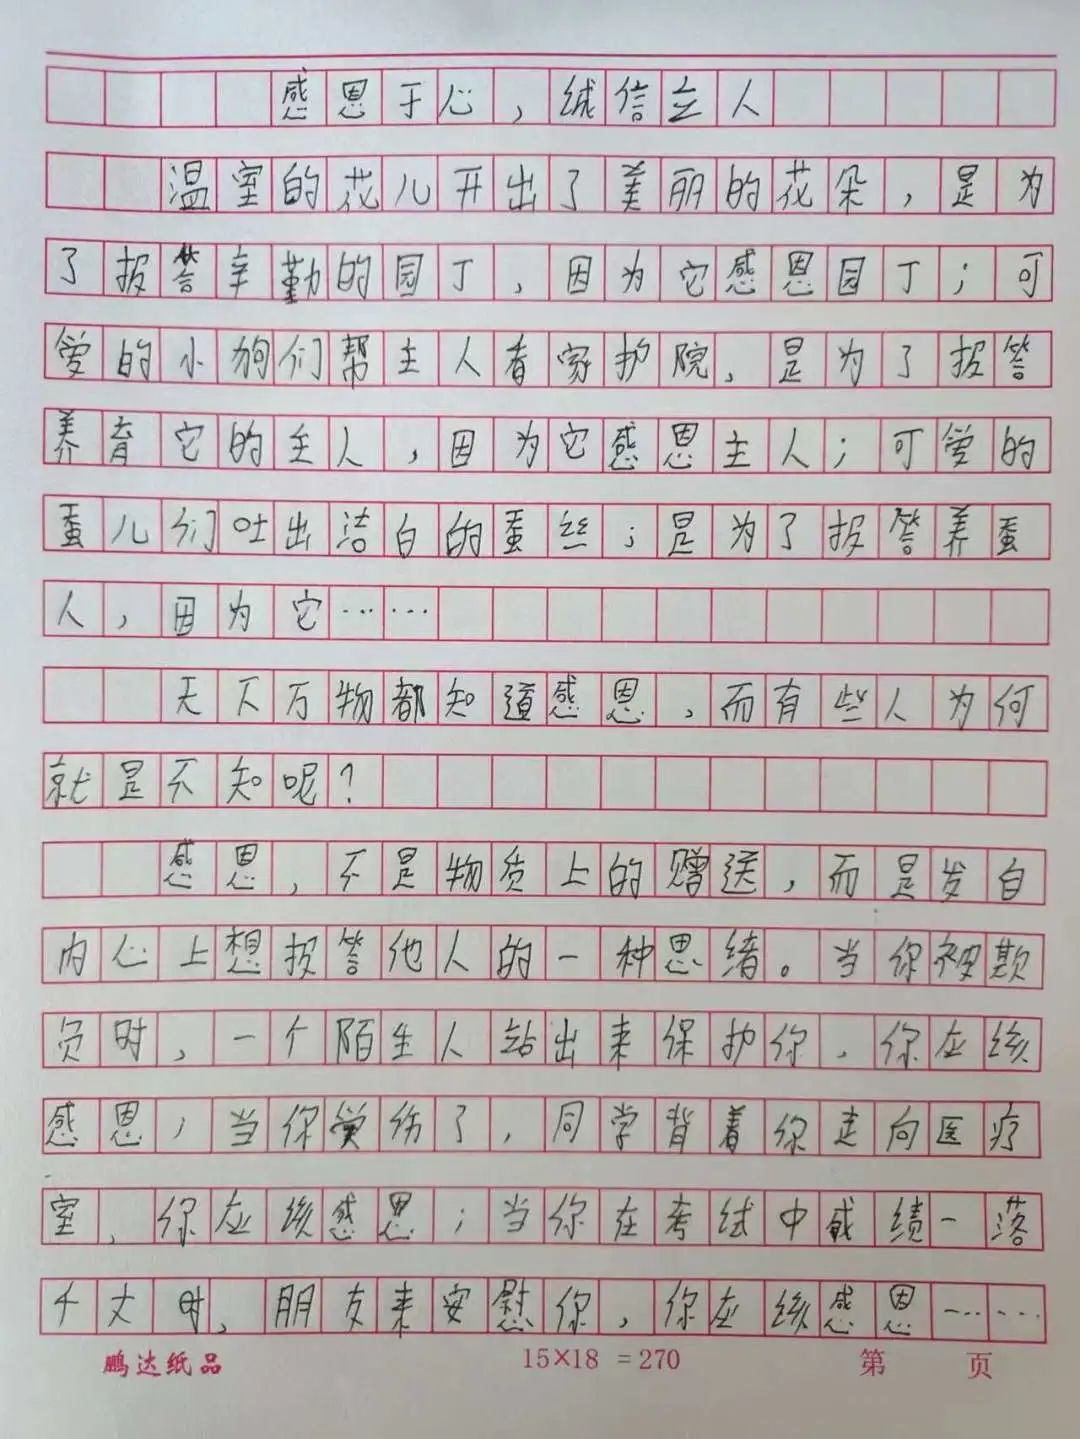 感恩于心，诚信立人
温室的花儿开出了美丽的花朵，是为
了报答辛勤的园丁，因为它感恩园丁；可
爱的小狗们帮主人看家护院，是为了报答
养育它的主人，因为它感恩主人；可爱的
蚕儿们吐出洁白的蚕丝；是为了报答养蚕
人，因为它……
天下万物都知道感恩，而有些人为何
就是不知呢？
感恩，不是物质上的赠送，而是发自
内心上想报答他人的一种思绪。当你被欺
负时，一个陌生人站出来保护你，你应该
感恩；当你受伤了，同学背着你走向医疗
室，你应该感恩；当你在考试中成绩一落
千丈时，朋友来安慰你，你应该感恩……
鹏达纸品 15×18 =270 第 页